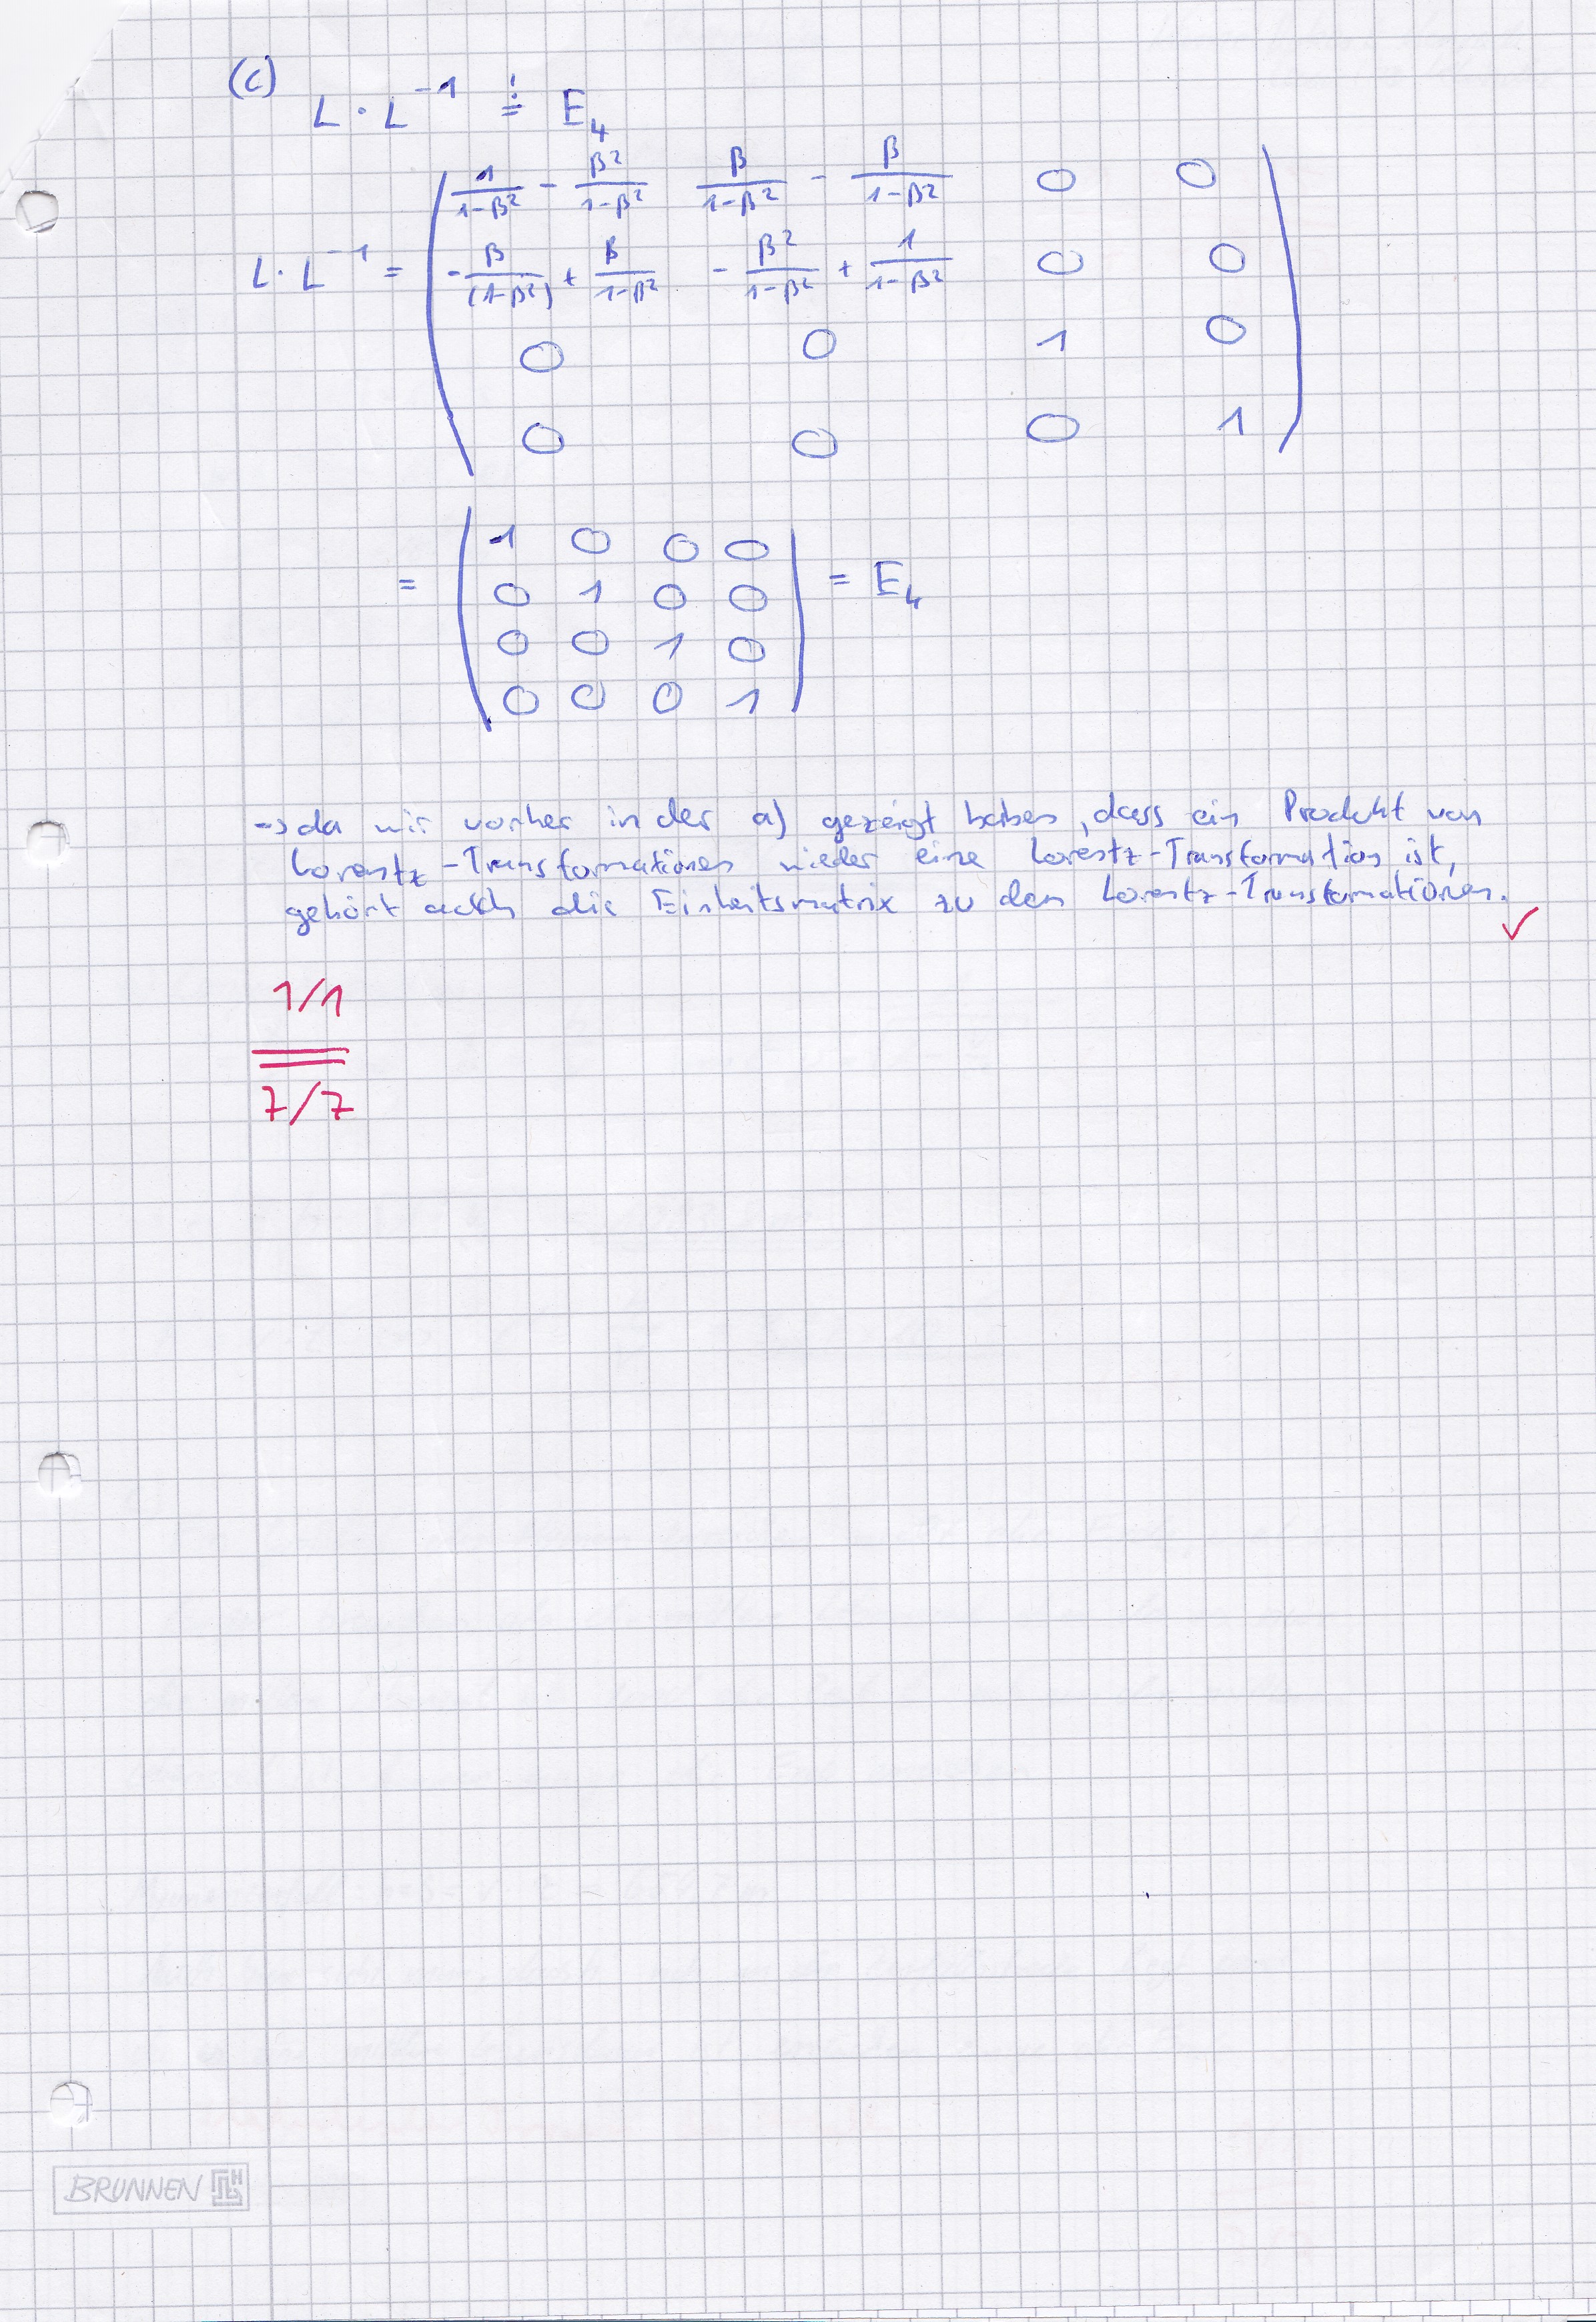 (c)
L · L⁻¹ =! E₄
L · L⁻¹ = ( 1/(1-β²) - β²/(1-β²)   β/(1-β²) - β/(1-β²)   0   0
-β/(1-β²) + β/(1-β²)   -β²/(1-β²) + 1/(1-β²)   0   0
0   0   1   0
0   0   0   1 )
= ( 1 0 0 0
0 1 0 0
0 0 1 0
0 0 0 1 ) = E₄
-> da wir vorher in der a) gezeigt haben, dass ein Produkt von
Lorentz-Transformationen wieder eine Lorentz-Transformation ist,
gehört auch die Einheitsmatrix zu den Lorentz-Transformationen. ✓
1/1
7/7
BRUNNEN